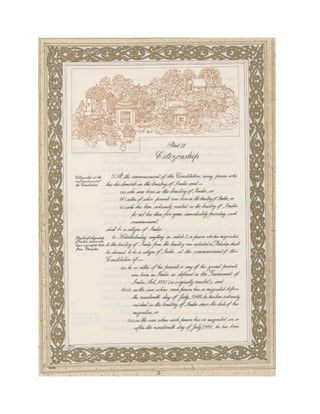 Part II
Citizenship
Citizenship at the
commencement of
the Constitution.
5. At the commencement of this Constitution, every person who
has his domicile in the territory of India and—
(a) who was born in the territory of India; or
(b) either of whose parents was born in the territory of India; or
(c) who has been ordinarily resident in the territory of India
for not less than five years immediately preceding such
commencement,
shall be a citizen of India.
Rights of citizenship
of certain persons who
have migrated to India
from Pakistan.
6. Notwithstanding anything in article 5, a person who has migrated
to the territory of India from the territory now included in Pakistan shall
be deemed to be a citizen of India at the commencement of this
Constitution if—
(a) he or either of his parents or any of his grand-parents
was born in India as defined in the Government of
India Act, 1935 (as originally enacted); and
(b)(i) in the case where such person has so migrated before
the nineteenth day of July, 1948, he has been ordinarily
resident in the territory of India since the date of his
migration, or
(ii) in the case where such person has so migrated on or
after the nineteenth day of July, 1948, he has been